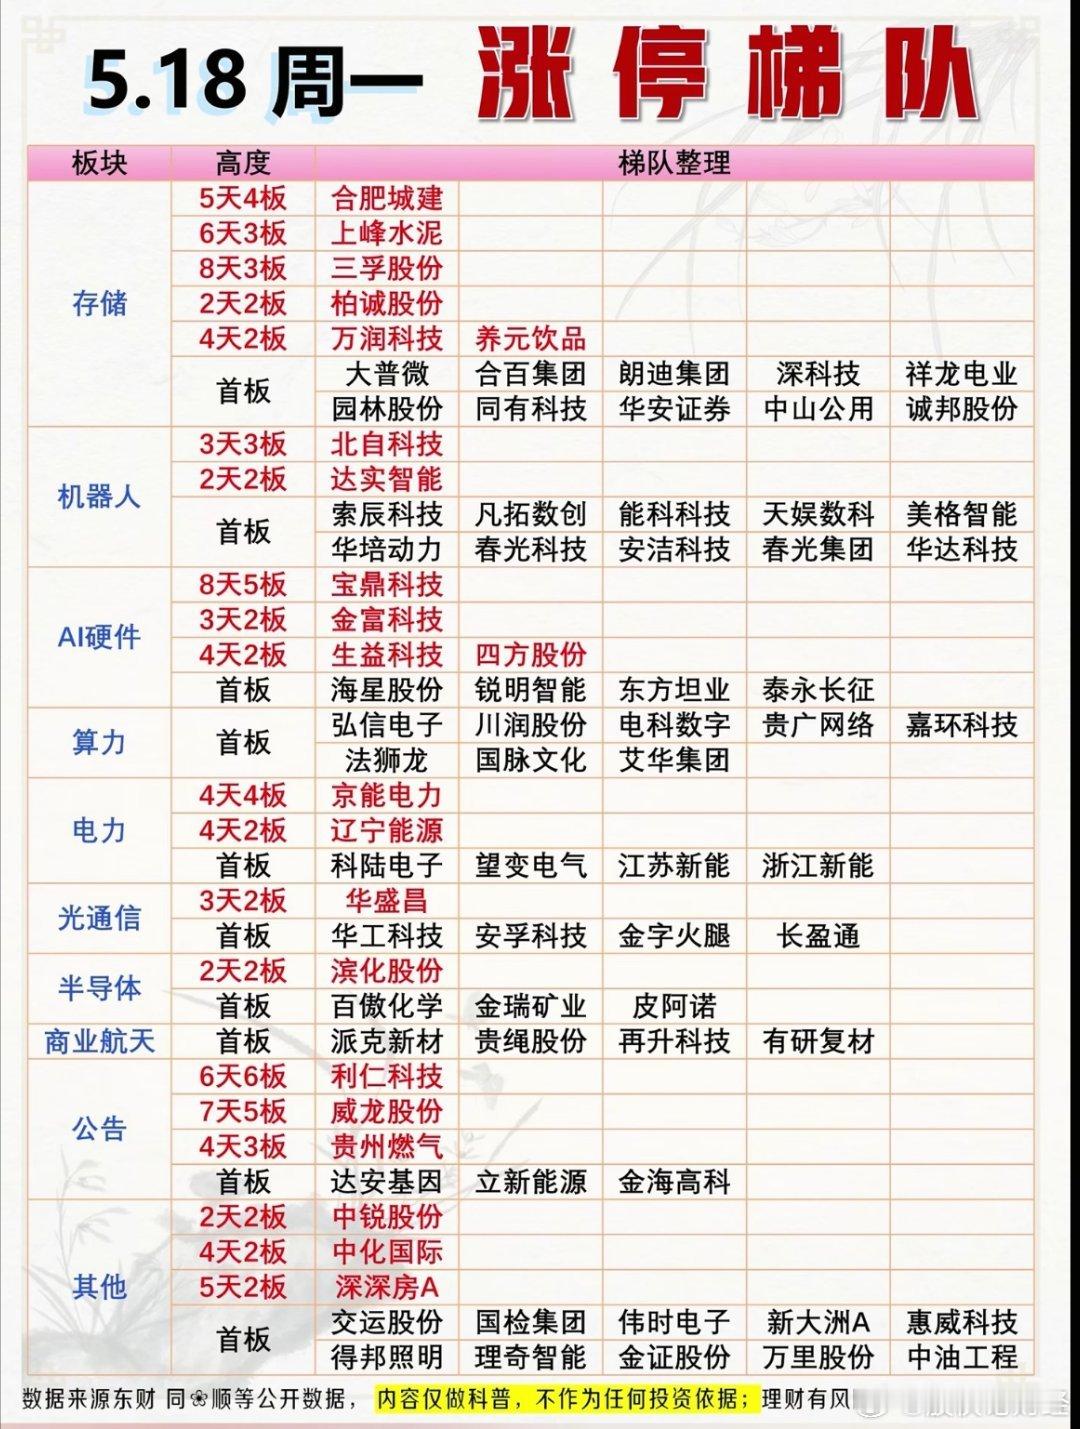 5.18 周一 涨停梯队
板块 高度 梯队整理
存储
5天4板 合肥城建
6天3板 上峰水泥
8天3板 三孚股份
2天2板 柏诚股份
4天2板 万润科技 养元饮品
首板
大普微 合百集团 朗迪集团 深科技 祥龙电业
园林股份 同有科技 华安证券 中山公用 诚邦股份
机器人
3天3板 北自科技
2天2板 达实智能
首板
索辰科技 凡拓数创 能科科技 天娱数科 美格智能
华培动力 春光科技 安洁科技 春光集团 华达科技
AI硬件
8天5板 宝鼎科技
3天2板 金富科技
4天2板 生益科技 四方股份
首板 海星股份 锐明智能 东方坦业 泰永长征
算力
首板
弘信电子 川润股份 电科数字 贵广网络 嘉环科技
法狮龙 国脉文化 艾华集团
电力
4天4板 京能电力
4天2板 辽宁能源
首板 科陆电子 望变电气 江苏新能 浙江新能
光通信
3天2板 华盛昌
首板 华工科技 安孚科技 金字火腿 长盈通
半导体
2天2板 滨化股份
首板 百傲化学 金瑞矿业 皮阿诺
商业航天 首板 派克新材 贵绳股份 再升科技 有研复材
公告
6天6板 利仁科技
7天5板 威龙股份
4天3板 贵州燃气
首板 达安基因 立新能源 金海高科
其他
2天2板 中锐股份
4天2板 中化国际
5天2板 深深房A
首板
交运股份 国检集团 伟时电子 新大洲A 惠威科技
得邦照明 理奇智能 金证股份 万里股份 中油工程
数据来源东财 同❀顺等公开数据，内容仅做科普，不作为任何投资依据；理财有风